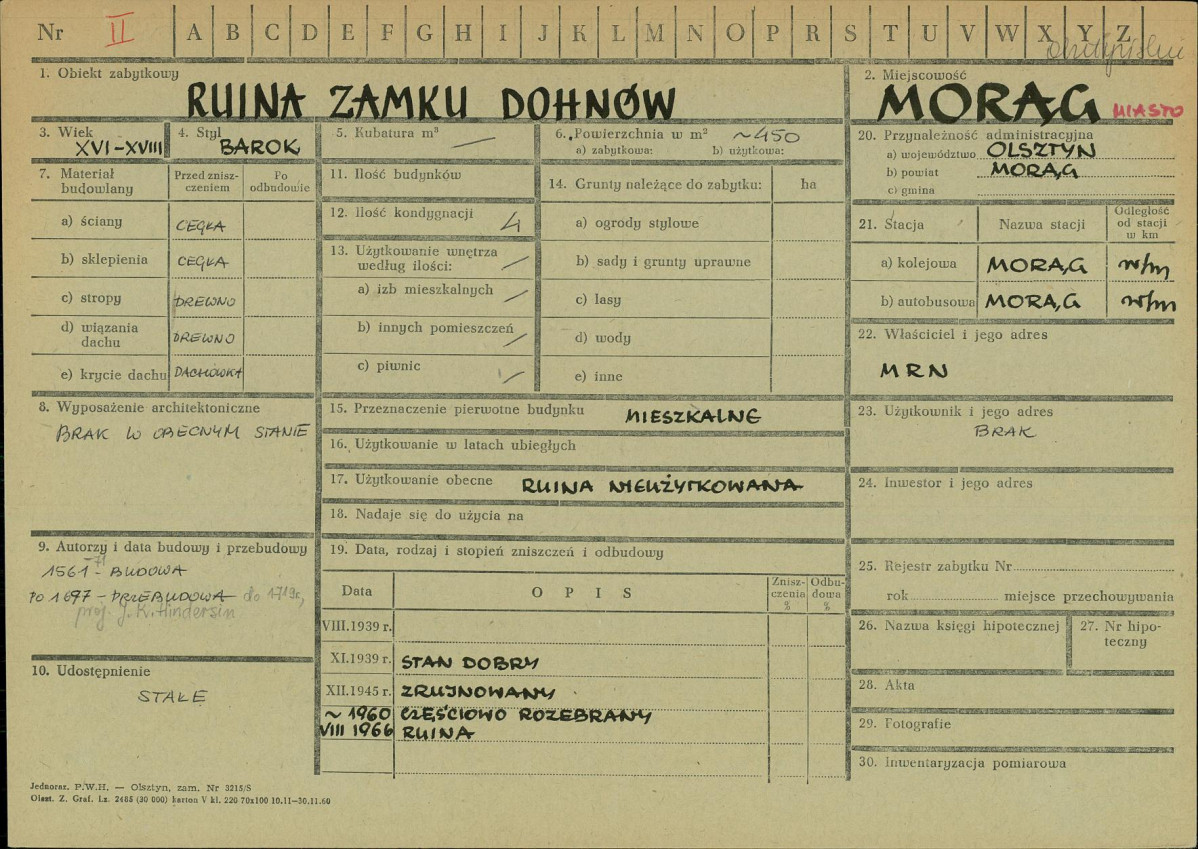 Nr II A B C D E F G H I J K L M N O P R S T U V W X Y Z
1. Obiekt zabytkowy
RUINA ZAMKU DOHNÓW
2. Miejscowość
MORĄG MIASTO
3. Wiek
XVI-XVIII
4. Styl
BAROK
5. Kubatura m³ —
6. Powierzchnia w m² ~450
a) zabytkowa: b) użytkowa:
7. Materiał budowlany
Przed zniszczeniem
Po odbudowie
a) ściany CEGŁA
b) sklepienia CEGŁA
c) stropy DREWNO
d) wiązania dachu DREWNO
e) krycie dachu DACHÓWKA
8. Wyposażenie architektoniczne
BRAK W OBECNYM STANIE
9. Autorzy i data budowy i przebudowy
1561-71 - BUDOWA
PO 1697 - PRZEBUDOWA do 1719r,
proj. J. K. Hindersin
10. Udostępnienie
STAŁE
11. Ilość budynków
12. Ilość kondygnacji 4
13. Użytkowanie wnętrza według ilości: —
a) izb mieszkalnych —
b) innych pomieszczeń —
c) piwnic —
14. Grunty należące do zabytku: ha
a) ogrody stylowe
b) sady i grunty uprawne
c) lasy
d) wody
e) inne
15. Przeznaczenie pierwotne budynku MIESZKALNE
16. Użytkowanie w latach ubiegłych
17. Użytkowanie obecne RUINA NIEUŻYTKOWANA
18. Nadaje się do użycia na
19. Data, rodzaj i stopień zniszczeń i odbudowy
Data OPIS Zniszczenia % Odbudowa %
VIII.1939 r.
XI.1939 r. STAN DOBRY
XII.1945 r. ZRUJNOWANY
~ 1960 CZĘŚCIOWO ROZEBRANY
VIII 1966 RUINA
20. Przynależność administracyjna
a) województwo OLSZTYN
b) powiat MORĄG
c) gmina
21. Stacja Nazwa stacji Odległość od stacji w km
a) kolejowa MORĄG w/m
b) autobusowa MORĄG w/m
22. Właściciel i jego adres
MRN
23. Użytkownik i jego adres
BRAK
24. Inwestor i jego adres
25. Rejestr zabytku Nr
rok miejsce przechowywania
26. Nazwa księgi hipotecznej
27. Nr hipoteczny
28. Akta
29. Fotografie
30. Inwentaryzacja pomiarowa
Jednoraz. P.W.H. — Olsztyn, zam. Nr 3215/S
Olszt. Z. Graf. Lz. 2485 (30 000) karton V kl. 220 70x100 10.11—30.11.60